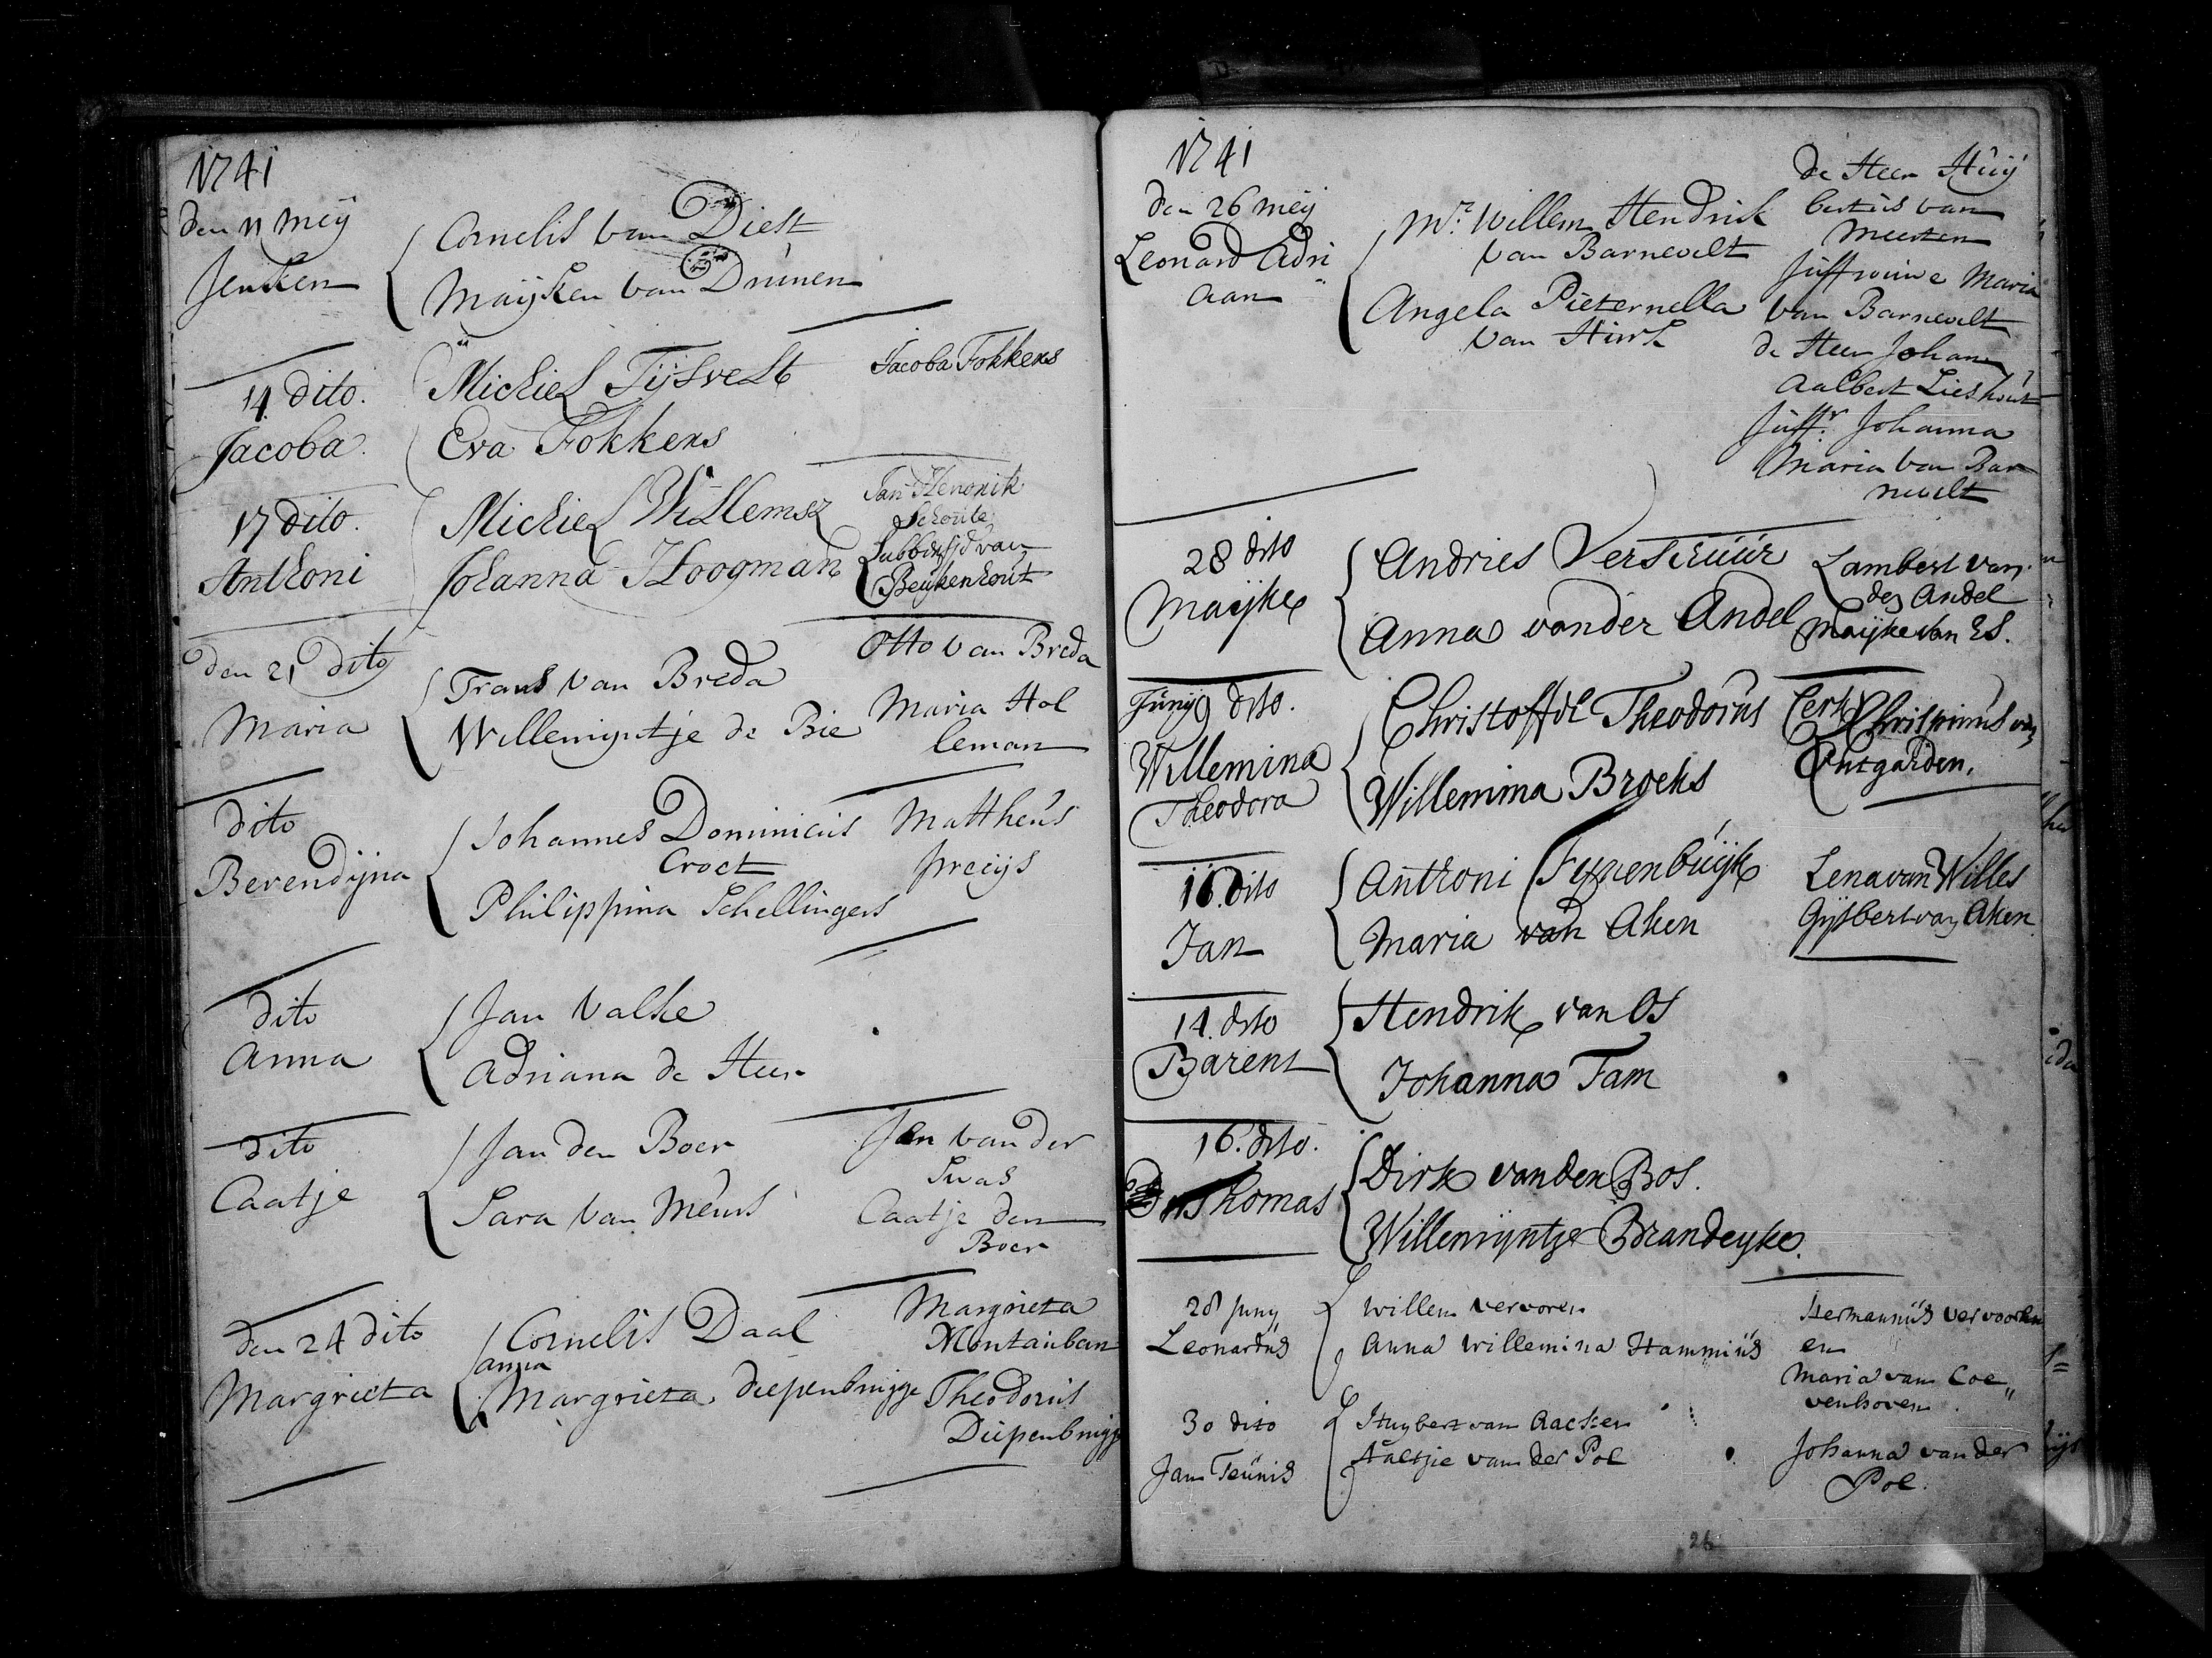 1741
den 11 meij
Jenken
Cornelis van Diest
Maijken van Drunen
14 dito.
Jacoba.
Michiel Tijsvelt
Eva Fokkens
Jacoba Fokkens
17 dito.
Anthoni
Michiel Willemsz
Johanna Hoogman
Jan Hendrik
Schoute
van
Beukenhout
den 21 dito
Maria
Frans van Breda
Willemijntje de Bie
Otto van Breda
Maria Hol
leman
dito
Berendijna
Johannes Dominicus
Croct
Philippina Schellingers
Mattheus
preijs
dito
Anna
Jan Valke
Adriana de Heer
dito
Caatje
Jan den Boer
Sara van Meurs
Jan van der
Swas
Caatje den
Boer
den 24 dito
Margrieta
Cornelis Daal
anna
Margrieta diepenbrugge
Margrieta
Montauban
Theodorus
Diepenbrugge
1741
den 26 meij
Leonard Adri
aan
Mr. Willem Hendrik
van Barnevelt
Angela Pieternella
van Hurk
de Heer Huij
bertus van
Meerten
Juffrouwe Maria
van Barnevelt
de Heer Johan
Aalbert Lieshout
Juffr. Johanna
Maria van Bar
nevelt
28 dito
Maijke
Andries Verschuur
Anna vander Andel
Lambert van
der Andel
Maijke van Es.
Junij 9 dito.
Willemina
Theodora
Christoffel Theodorus
Willemina Broeks
Chrispinus van
Outgarden.
dito
Jan
Anthoni Fijnenbuijk
Maria van Aken
Lena van Willes
Gijsbert van Aken
14. dito
Barent
Hendrik van Os
Johanna Tam
16. dito.
Thomas
Dirk van den Bos.
Willemijntje Brandeyke.
28 Juny
Leonardus
willem vervoren
Anna willemina Hammius
Hermannus vervooren
en
Maria van Coe„
venhoven
30 dito
Jan Teunis
Huybert van Aacken
Aaltjie van der Pol
Johanna van der
Pol.
26